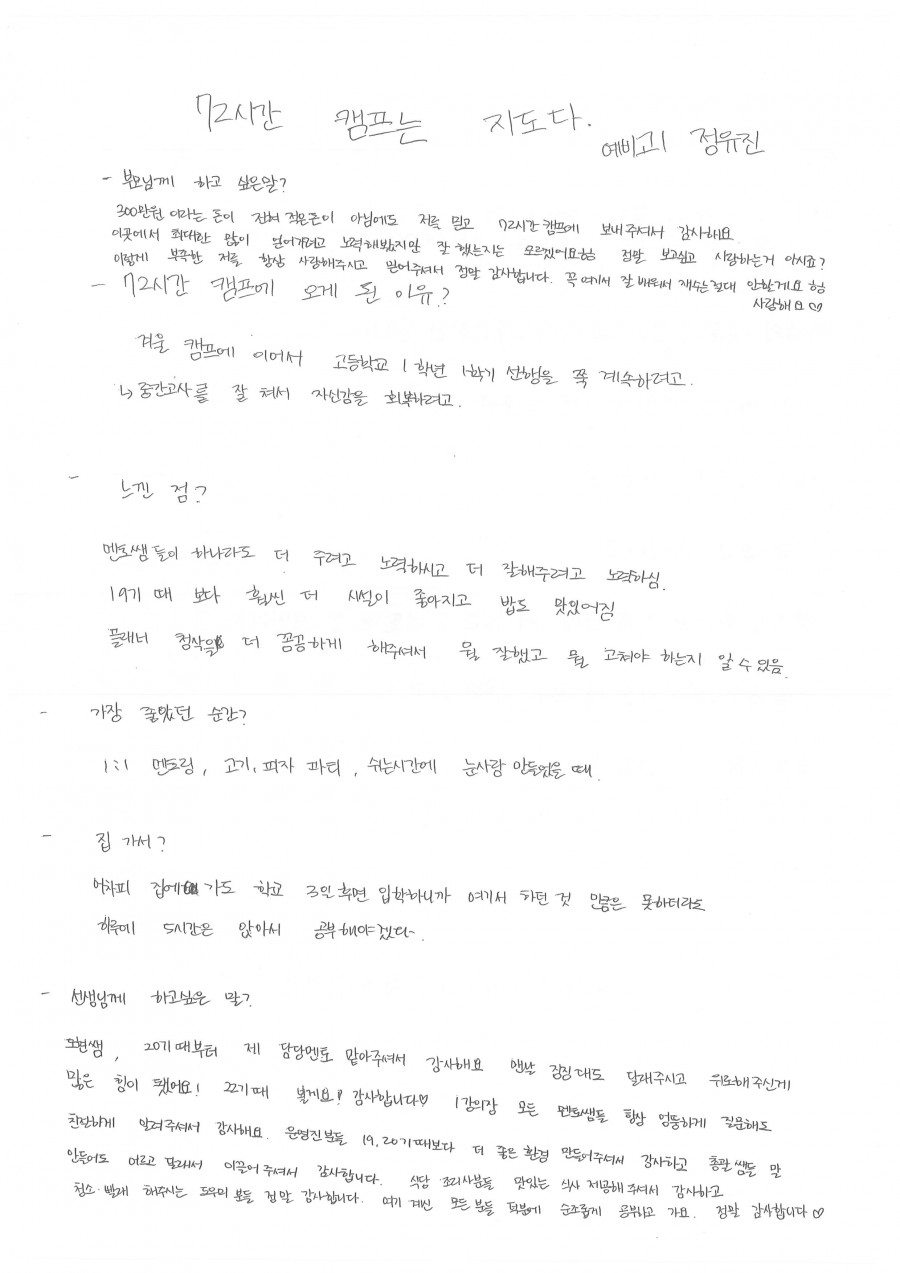 72시간 캠프는 지도다.
예비고1 정유진
- 부모님께 하고 싶은말?
300만원 이라는 돈이 전혀 적은돈이 아님에도 저를 믿고 72시간 캠프에 보내주셔서 감사해요
이곳에서 최대한 많이 얻어가려고 노력해봤지만 잘 했는지는 모르겠어요ㅎㅎ 정말 보고싶고 사랑하는거 아시죠?
이렇게 부족한 저를 항상 사랑해주시고 믿어주셔서 정말 감사합니다. 꼭 여기서 잘 배워서 재수는 절대 안할게요 ㅎㅎ
사랑해요♡
- 72시간 캠프에 오게 된 이유?
겨울 캠프에 이어서 고등학교 1학년 1학기 선행을 쭉 계속하려고.
↳ 중간고사를 잘 쳐서 자신감을 회복하려고.
- 느낀 점?
멘토쌤들이 하나라도 더 주려고 노력하시고 더 잘해주려고 노력하심.
19기 때 보다 훨씬 더 시설이 좋아지고 밥도 맛있어짐
플래너 첨삭을 더 꼼꼼하게 해주셔서 뭘 잘했고 뭘 고쳐야 하는지 알 수 있음.
- 가장 좋았던 순간?
1:1 멘토링, 고기, 피자 파티, 쉬는시간에 눈사람 만들었을 때.
- 집 가서?
어차피 집에 가도 학교 3일 후면 입학하니까 여기서 하던 것 만큼은 못하더라도
하루에 5시간은 앉아서 공부해야겠다~
- 선생님께 하고싶은 말?
쌤, 20기때부터 제 담당멘토 맡아주셔서 감사해요 맨날 징징대도 달래주시고 위로해주신게
많은 힘이 됐어요! 22기때 볼게요! 감사합니다♡ 1강의장 모든 멘토쌤들 항상 엉뚱하게 질문해도
친절하게 알려주셔서 감사해요. 운영진분들 19, 20기때보다 더 좋은 환경 만들어주셔서 감사하고 총괄쌤들 말
안들어도 어르고 달래서 이끌어 주셔서 감사합니다. 식당 조리사분들 맛있는 식사 제공해주셔서 감사하고
청소·빨래 해주시는 도우미 분들 정말 감사합니다. 여기 계신 모든 분들 덕분에 순조롭게 공부하고 가요. 정말 감사합니다♡